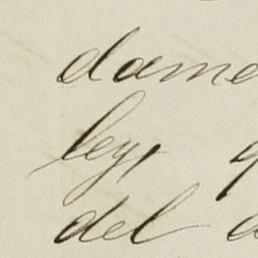 dame
ley,
del